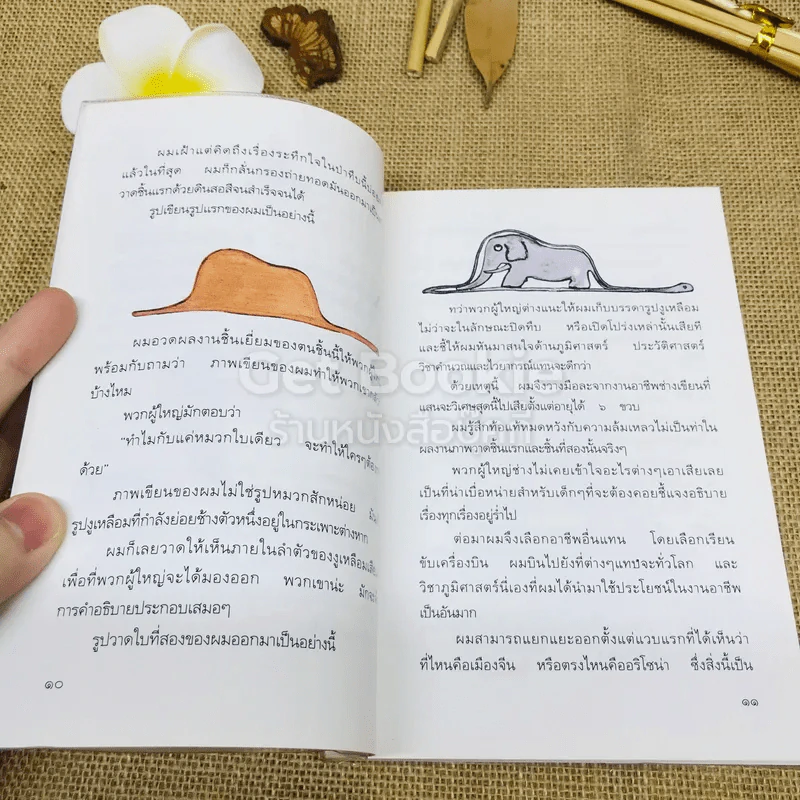 ผมเฝ้าแต่คิดถึงเรื่องระทึกใจในป่าทึบนี้บ่อย
แล้วในที่สุด ผมก็กลั่นกรองถ่ายทอดมันออกมาเป็น
วาดชิ้นแรกด้วยดินสอสีจนสำเร็จจนได้
รูปเขียนรูปแรกของผมเป็นอย่างนี้
ผมอวดผลงานชิ้นเยี่ยมของตนชิ้นนี้ให้พวกผู้
พร้อมกับถามว่า ภาพเขียนของผมทำให้พวกเขา
บ้างไหม
พวกผู้ใหญ่มักตอบว่า
"ทำไมกับแค่หมวกใบเดียว จะทำให้ใครๆต้อง
ด้วย"
ภาพเขียนของผมไม่ใช่รูปหมวกสักหน่อย
รูปงูเหลือมที่กำลังย่อยช้างตัวหนึ่งอยู่ในกระเพาะต่างหาก
ผมก็เลยวาดให้เห็นภายในลำตัวของงูเหลือม
เพื่อที่พวกผู้ใหญ่จะได้มองออก พวกเขาน่ะ มักจะ
การคำอธิบายประกอบเสมอๆ
รูปวาดใบที่สองของผมออกมาเป็นอย่างนี้
๑๐
ทว่าพวกผู้ใหญ่ต่างแนะให้ผมเก็บบรรดารูปงูเหลือม
ไม่ว่าจะในลักษณะปิดทึบ หรือเปิดโปร่งเหล่านั้นเสียที
และชี้ให้ผมหันมาสนใจด้านภูมิศาสตร์ ประวัติศาสตร์
วิชาคำนวณและไวยากรณ์แทนจะดีกว่า
ด้วยเหตุนี้ ผมจึงวางมือละจากงานอาชีพช่างเขียนที่
แสนจะวิเศษสุดนี้ไปเสียตั้งแต่อายุได้ ๖ ขวบ
ผมรู้สึกท้อแท้หมดหวังกับความล้มเหลวไม่เป็นท่าใน
ผลงานภาพวาดชิ้นแรกและชิ้นที่สองนั้นจริงๆ
พวกผู้ใหญ่ช่างไม่เคยเข้าใจอะไรต่างๆเอาเสียเลย
เป็นที่น่าเบื่อหน่ายสำหรับเด็กๆที่จะต้องคอยชี้แจงอธิบาย
เรื่องทุกเรื่องอยู่ร่ำไป
ต่อมาผมจึงเลือกอาชีพอื่นแทน โดยเลือกเรียน
ขับเครื่องบิน ผมบินไปยังที่ต่างๆแทบจะทั่วโลก และ
วิชาภูมิศาสตร์นี่เองที่ผมได้นำมาใช้ประโยชน์ในงานอาชีพ
เป็นอันมาก
ผมสามารถแยกแยะออกตั้งแต่แวบแรกที่ได้เห็นว่า
ที่ไหนคือเมืองจีน หรือตรงไหนคืออริโซน่า ซึ่งสิ่งนี้เป็น
๑๑
Get Bookie
ร้านหนังสือเก็ทบุ๊คกี้